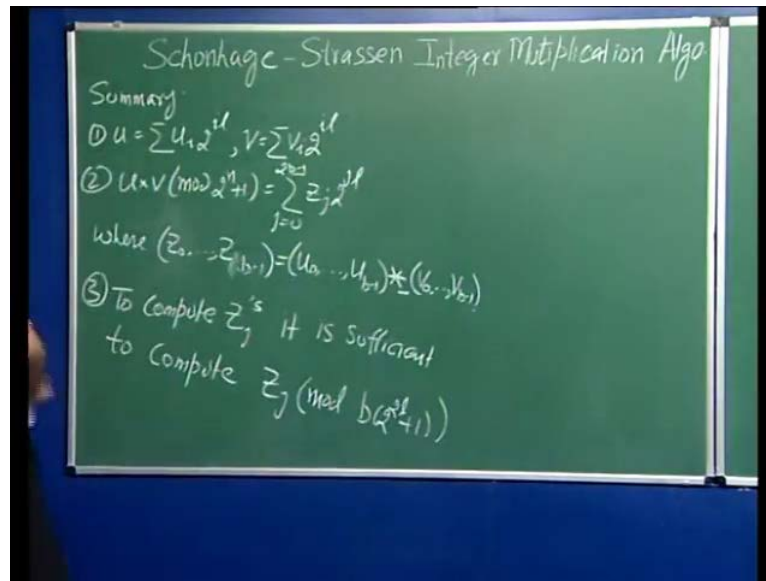 Schonhage-Strassen Integer Mutiplication Algo.
Summary:
① U = ∑ U_i 2^{il}, V = ∑ V_i 2^{il}
② U×V (mod 2^n+1) = ∑_{j=0} Z_j 2^{jl}
where (Z_0, ..., Z_{b-1}) = (U_0, ..., U_{b-1}) * (V_0, ..., V_{b-1})
③ To compute Z_j's it is sufficient
to compute Z_j (mod b(2^{2l}+1))